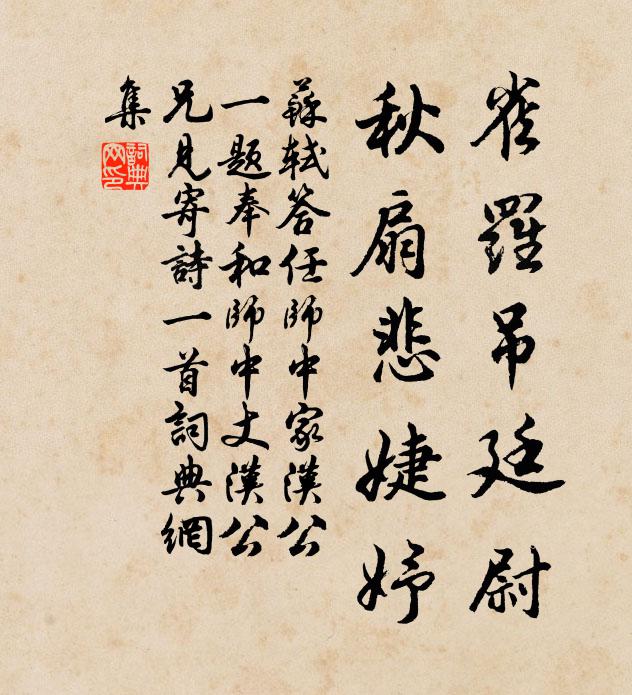 雀羅吊廷尉
秋扇悲婕妤
蘇軾答任師中家漢公
一題奉和師中丈漢公
兄見寄詩一首詞典網
集
詞典
网印